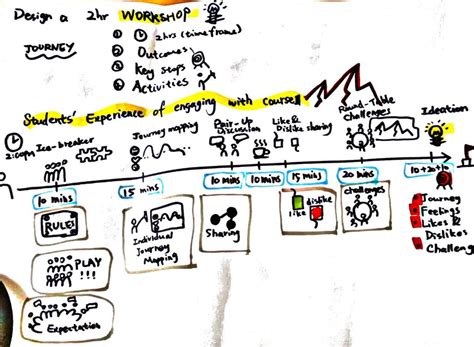 Design a 2hr WORKSHOP
JOURNEY
① 2hrs (timeframe)
② Outcomes
③ Key Stops
④ Activities
Students' Experience of engaging with Courses
2:00pm Ice-breaker
Journey mapping
Pair-Up
Discussion
Like &
Dislike sharing
Round-Table
Challenges
Ideation
10 mins
15 mins
10 mins
10 mins
15 mins
20 mins
10+20+10
RULES
PLAY
!!!
Expectation
Individual
Journey
Mapping
Sharing
like
dislike
challenges
Journey
Feelings
Likes &
Dislikes
Challenge